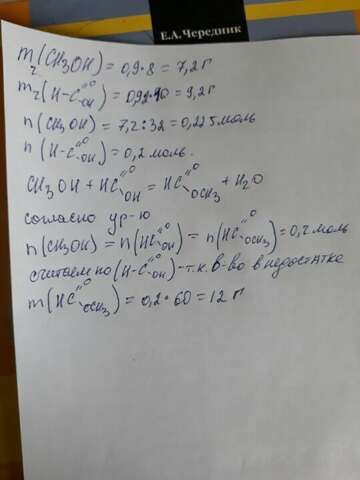 Е.А.Чередник
m₂(CH₃OH) = 0,9·8 = 7,2 г
m₂(H-C=O OH) = 0,92·10 = 9,2 г
n(CH₃OH) = 7,2:32 = 0,225 моль
n(H-C=O OH) = 0,2 моль.
CH₃OH + HC=O OH = HC=O OCH₃ + H₂O
согласно ур-ю
n(CH₃OH) = n(HC=O OH) = n(HC=O OCH₃) = 0,2 моль
считаем по (H-C=O OH) - т.к. в-во в недостатке
m(HC=O OCH₃) = 0,2·60 = 12 г